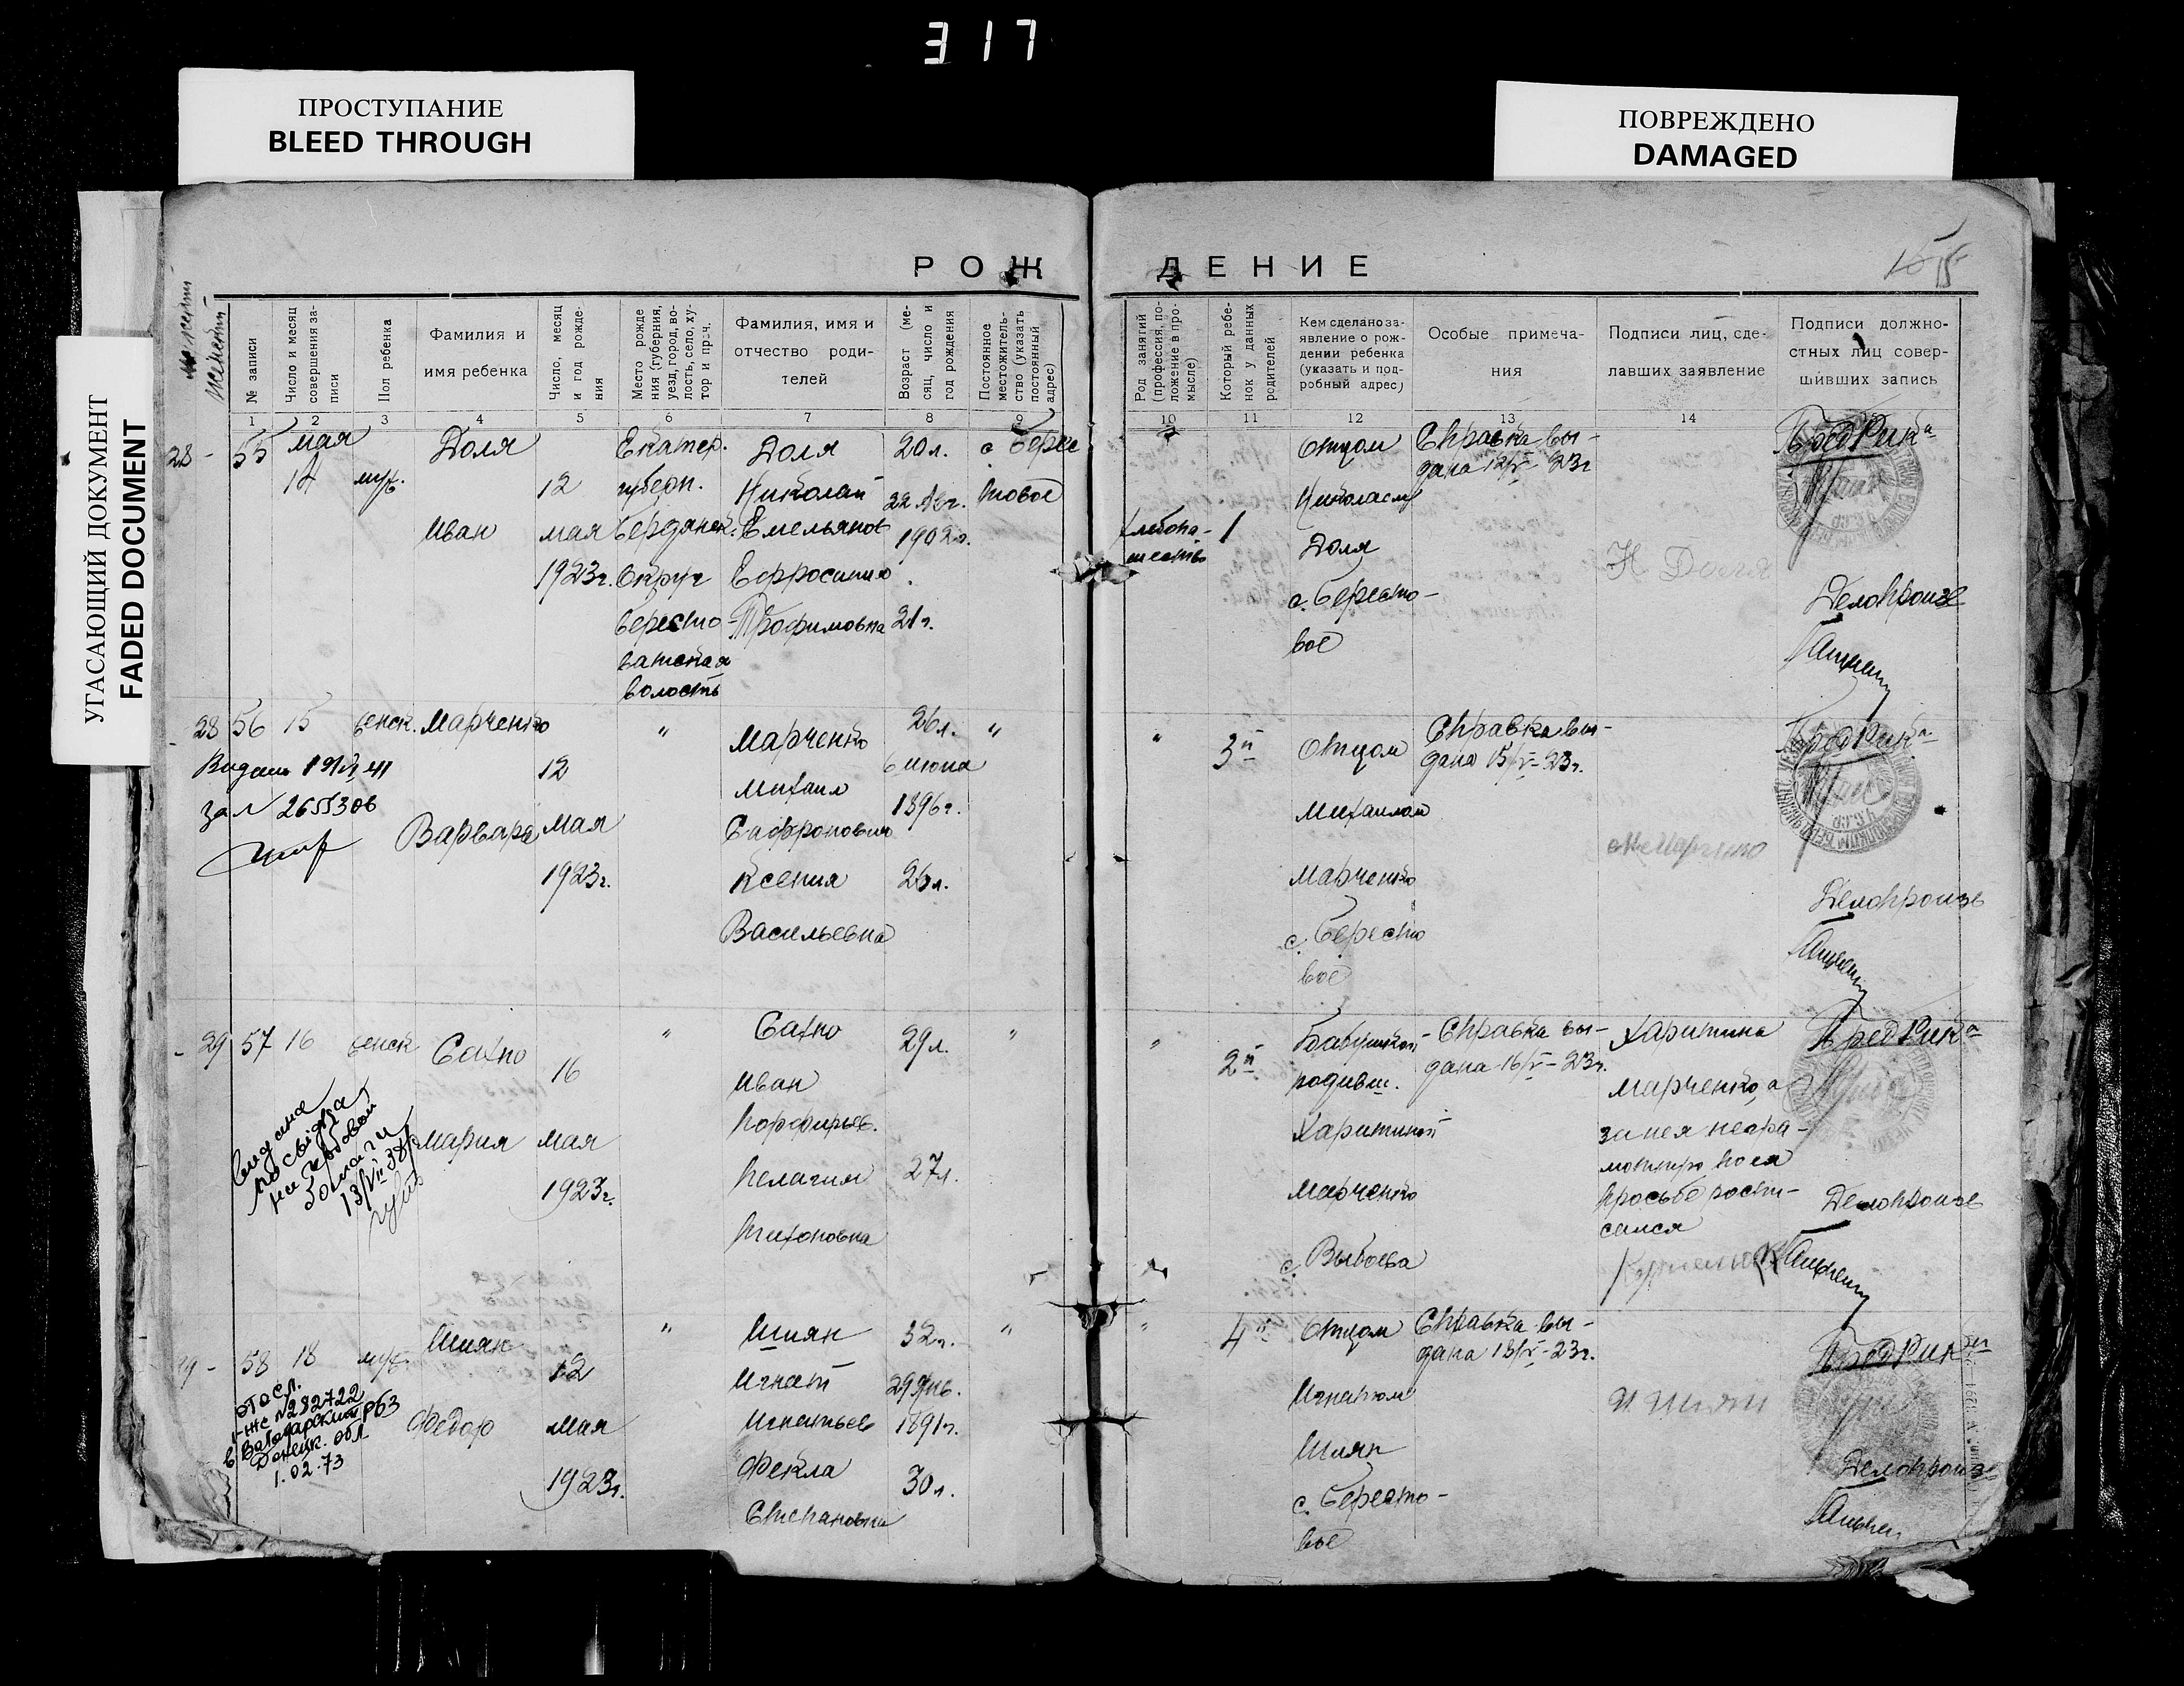 317
ПРОСТУПАНИЕ
BLEED THROUGH
ПОВРЕЖДЕНО
DAMAGED
УГАСАЮЩИЙ ДОКУМЕНТ
FADED DOCUMENT
РОЖДЕНИЕ
№ записи
Число и месяц совершения записи
Пол ребенка
Фамилия и имя ребенка
Число, месяц и год рождения
Место рождения (губерния, уезд, город, волость, село, хутор и проч.
Фамилия, имя и отчество родителей
Возраст (месяц, число и год рождения
Постоянное местожительство (указать постоянный адрес)
Род занятий (профессия, положение в промысле)
Который ребенок у данных родителей
Кем сделано заявление о рождении ребенка (указать и подробный адрес)
Особые примечания
Подписи лиц, сделавших заявление
Подписи должностных лиц совершивших запись
1 2 3 4 5 6 7 8 9 10 11 12 13 14
28 - 55
мая
14
муж.
Доля
Иван
12
мая
1923г.
Екатер.
губерн.
Бердянск.
Округ
Бересто-
ватская
волость
Доля
Николай
Емельянов
Ефросиния
Трофимовна
20л.
1902г.
21г.
с. Берес
товое
Хлебопа-
шество
1
Отцом
Николаем
Доля
с. Бересто-
вое
Справка вы-
дана 12/V-23г
Н Доля
ПредРика
Делопроизв
28 56
15
женск.
Марченко
Варвара
12
мая
1923г.
"
Марченко
Михаил
Сафронович
Ксения
Васильевна
26л.
6 июня
1896г.
26л.
"
"
3й
Отцом
Михаилом
Марченко
с. Бересто
вое
Справка вы-
дана 15/V-23г.
Марченко
ПредРика
Делопроизв
за N 2655306
29 57
16
женск
Сахно
Мария
16
мая
1923г.
"
Сахно
Иван
Порфирьев.
Пелагия
Тихоновна
29л.
27л.
"
"
2й
Бабушкой
родивш.
Харитиной
Марченко
Справка вы-
дана 16/V-23г.
Харитина
Марченко, а
за нея негра-
мотную по ея
просьбе распи-
сался
ПредРика
Делопроизв
видана
посвідка
58
18
муж.
Шиян
Федор
12
мая
1923г.
"
Шиян
Игнат
Игнатьев
Фекла
Степановна
32г.
29 Янв.
1891г.
30л.
"
"
4й
Отцом
Игнатом
Шиян
с. Бересто-
вое
Справка вы-
дана 18/V-23г.
И Шиян
ПредРика
Делопроизв
№282722
Донецк. обл
1.02.73